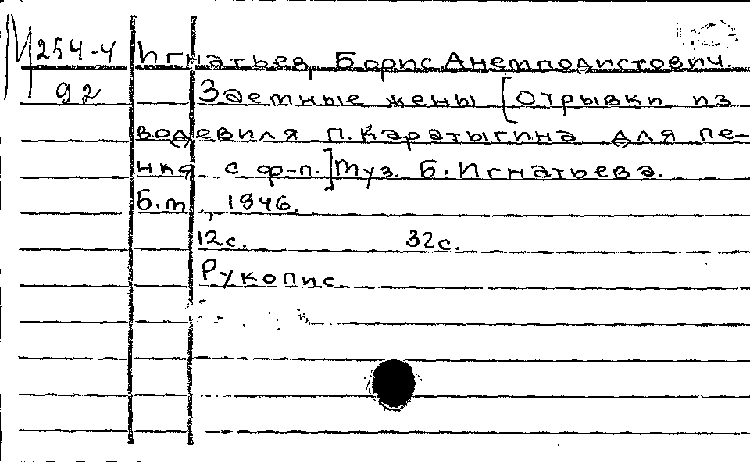 М 254-4 Игнатьев, Борис Анемподистович.
92 Заемные жены [Отрывки из
водевиля П. Каратыгина для пе-
ния с ф-п.] Муз. Б. Игнатьева.
Б.м., 1946.
12с. 32с.
Рукопис.